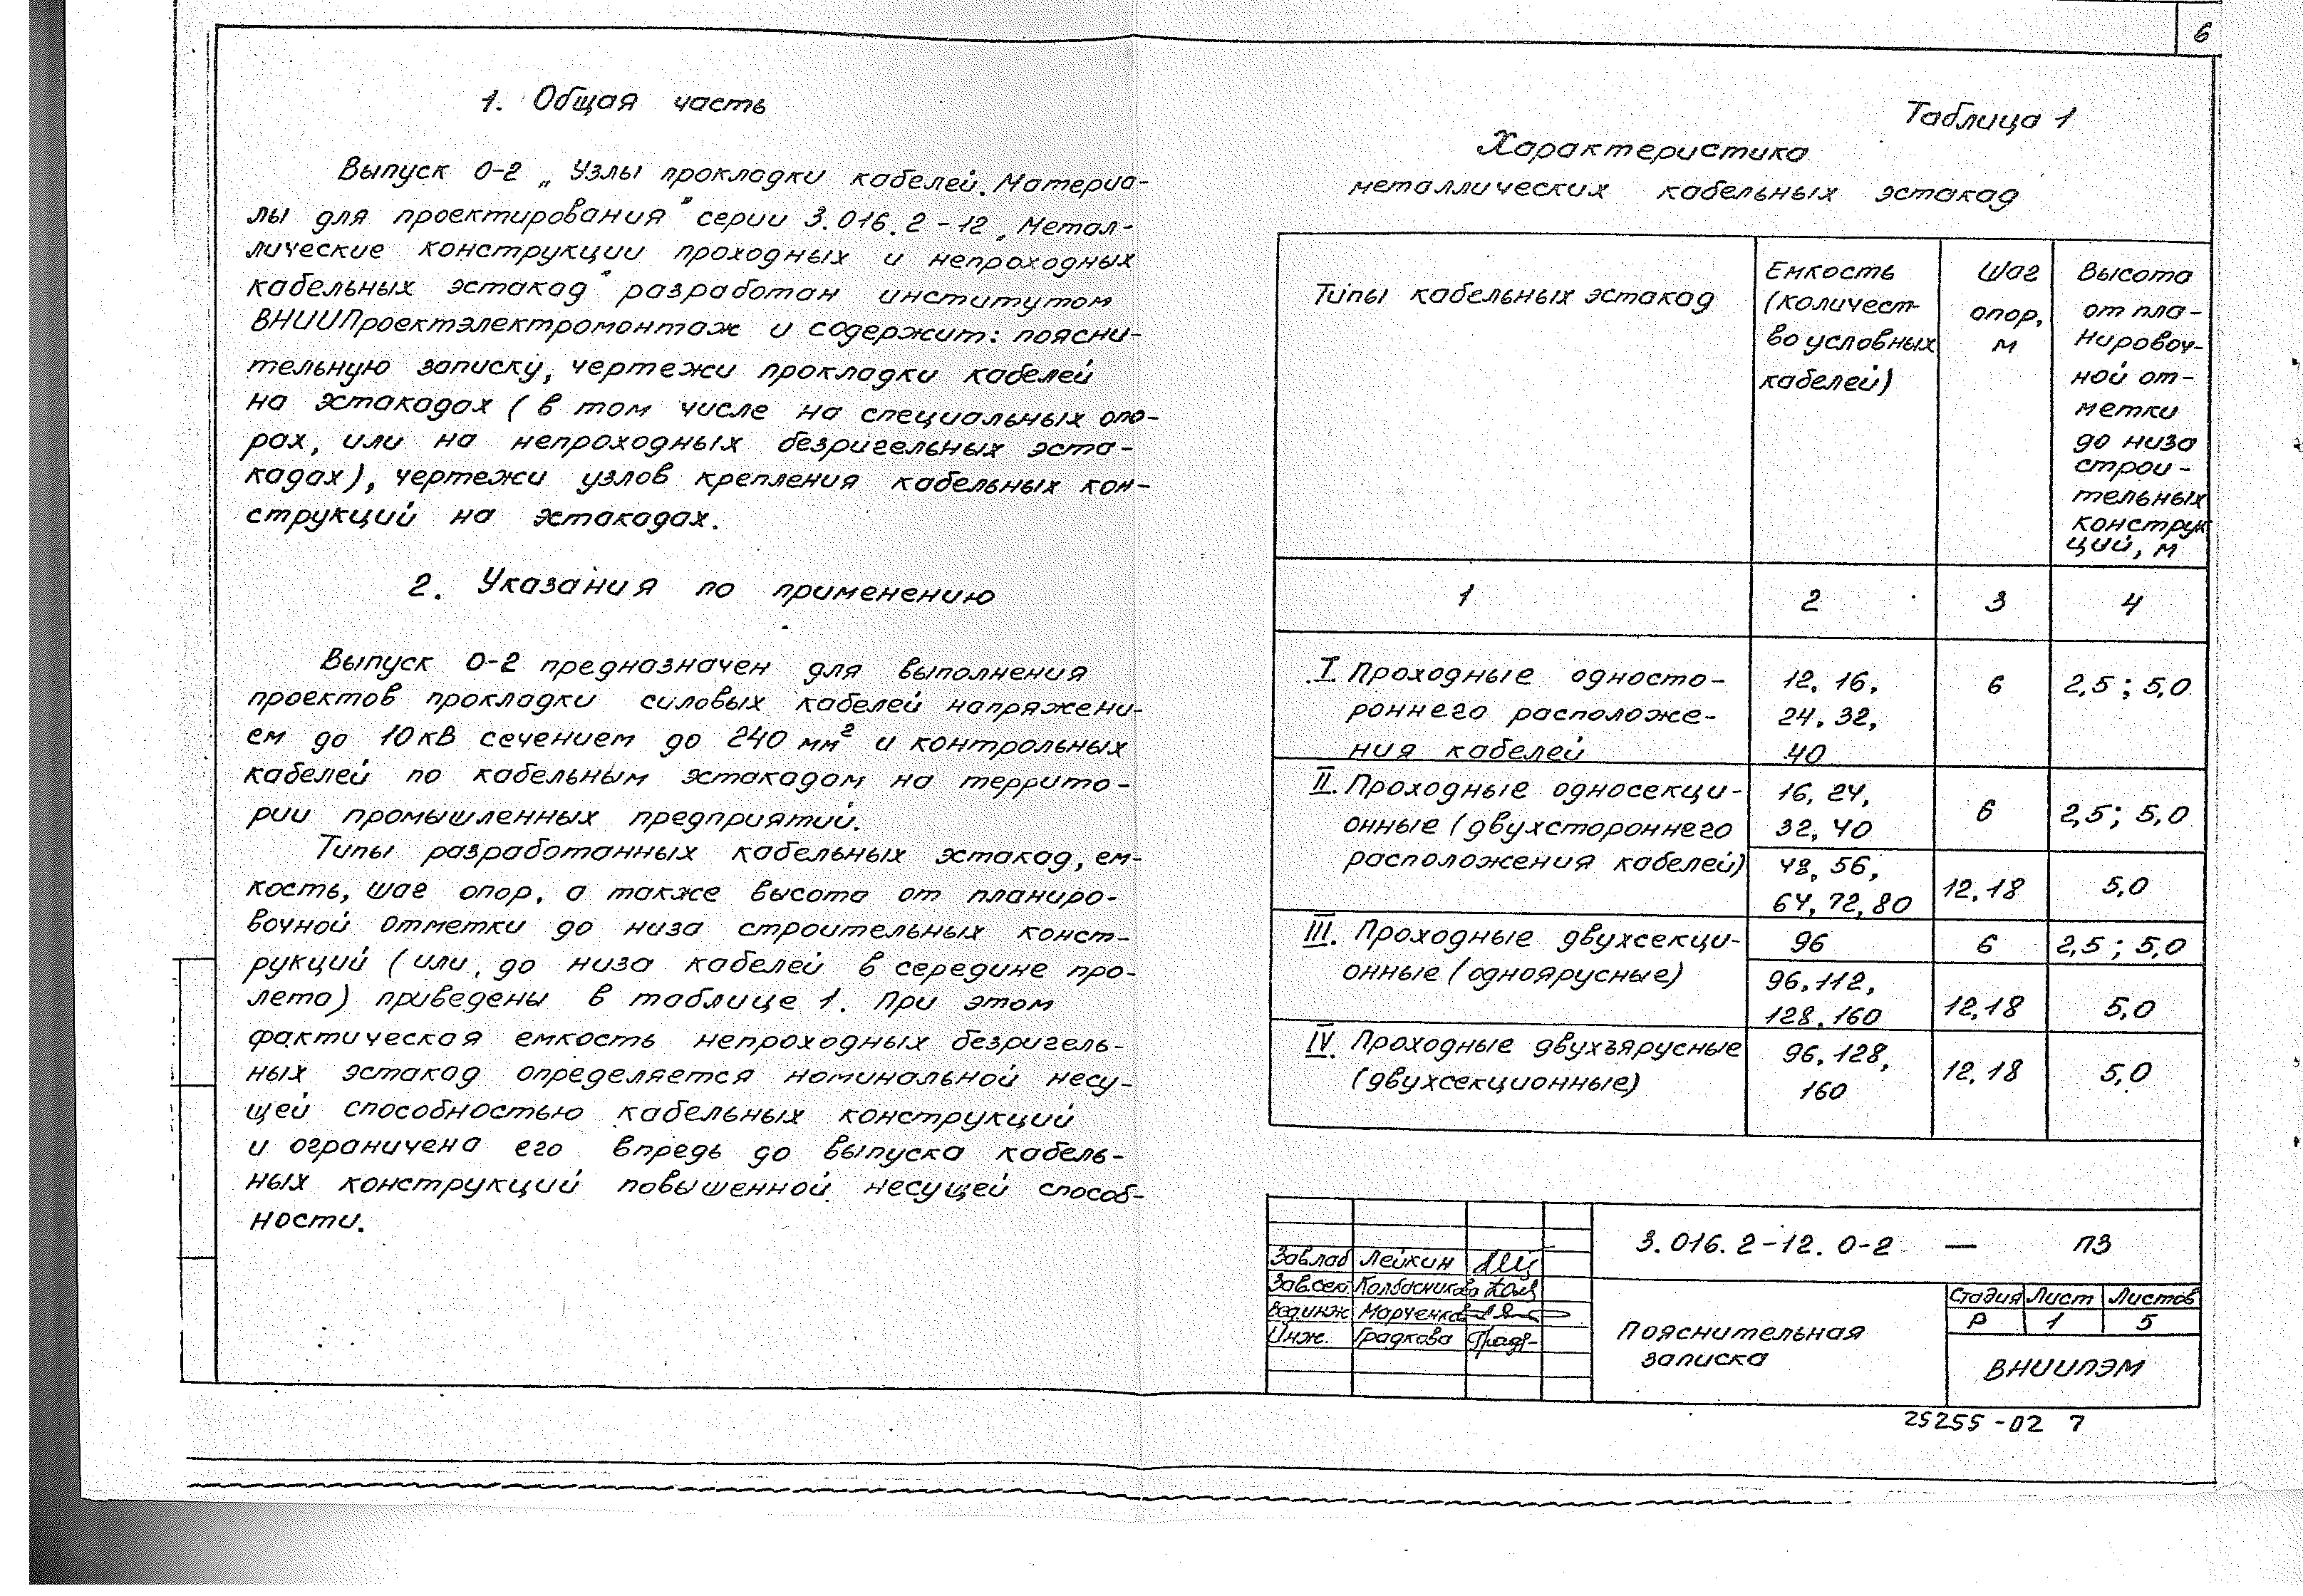 6
1. Общая часть
Выпуск 0-2 „Узлы прокладки кабелей. Материа-
лы для проектирования" серии 3.016.2-12 „Метал-
лические конструкции проходных и непроходных
кабельных эстакад" разработан институтом
ВНИИПроектэлектромонтаж и содержит: поясни-
тельную записку, чертежи прокладки кабелей
на эстакадах (в том числе на специальных опо-
рах, или на непроходных безригельных эста-
кадах), чертежи узлов крепления кабельных кон-
струкций на эстакадах.
2. Указания по применению
Выпуск 0-2 предназначен для выполнения
проектов прокладки силовых кабелей напряжени-
ем до 10кВ сечением до 240 мм² и контрольных
кабелей по кабельным эстакадам на террито-
рии промышленных предприятий.
Типы разработанных кабельных эстакад, ем-
кость, шаг опор, а также высота от планиро-
вочной отметки до низа строительных конст-
рукций (или до низа кабелей в середине про-
лета) приведены в таблице 1. При этом
фактическая емкость непроходных безригель-
ных эстакад определяется номинальной несу-
щей способностью кабельных конструкций
и ограничена его впредь до выпуска кабель-
ных конструкций повышенной несущей способ-
ности.
Таблица 1
Характеристика
металлических кабельных эстакад
Типы кабельных эстакад
Емкость
(количест-
во условных
кабелей)
Шаг
опор,
м
Высота
от пла-
нировоч-
ной от-
метки
до низа
строи-
тельных
конструк
ций, м
1 2 3 4
I. Проходные односто- 12, 16, 6 2,5; 5,0
роннего расположе- 24, 32,
ния кабелей 40
II. Проходные односекци- 16, 24, 6 2,5; 5,0
онные (двухстороннего 32, 40
расположения кабелей) 48, 56, 12, 18 5,0
64, 72, 80
III. Проходные двухсекци- 96 6 2,5; 5,0
онные (одноярусные) 96, 112, 12, 18 5,0
128, 160
IV. Проходные двухъярусные 96, 128, 12, 18 5,0
(двухсекционные) 160
3.016.2-12. 0-2 — ПЗ
Завлаб Лейкин
Зав.сек Колбасникова
Вед.инж Марченко
Инж. Градкова
Пояснительная
записка
Стадия Лист Листов
Р 1 5
ВНИИПЭМ
25255-02 7